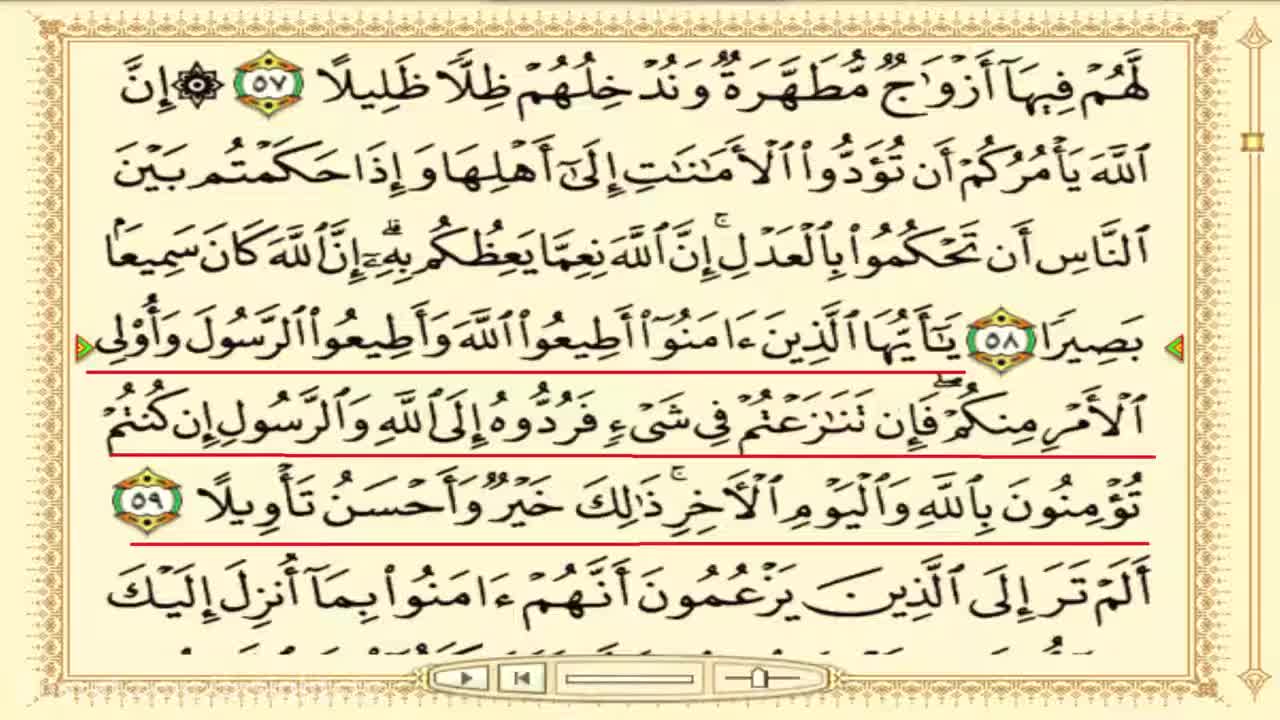 لَّهُمْ فِيهَآ أَزْوَٰجٌ مُّطَهَّرَةٌ وَنُدْخِلُهُمْ ظِلًّا ظَلِيلًا ٥٧ ۞ إِنَّ
ٱللَّهَ يَأْمُرُكُمْ أَن تُؤَدُّوا۟ ٱلْأَمَـٰنَـٰتِ إِلَىٰٓ أَهْلِهَا وَإِذَا حَكَمْتُم بَيْنَ
ٱلنَّاسِ أَن تَحْكُمُوا۟ بِٱلْعَدْلِ ۚ إِنَّ ٱللَّهَ نِعِمَّا يَعِظُكُم بِهِۦٓ ۗ إِنَّ ٱللَّهَ كَانَ سَمِيعًۢا
بَصِيرًا ٥٨ يَـٰٓأَيُّهَا ٱلَّذِينَ ءَامَنُوٓا۟ أَطِيعُوا۟ ٱللَّهَ وَأَطِيعُوا۟ ٱلرَّسُولَ وَأُو۟لِى
ٱلْأَمْرِ مِنكُمْ ۖ فَإِن تَنَـٰزَعْتُمْ فِى شَىْءٍ فَرُدُّوهُ إِلَى ٱللَّهِ وَٱلرَّسُولِ إِن كُنتُمْ
تُؤْمِنُونَ بِٱللَّهِ وَٱلْيَوْمِ ٱلْـَٔاخِرِ ۚ ذَٰلِكَ خَيْرٌ وَأَحْسَنُ تَأْوِيلًا ٥٩
أَلَمْ تَرَ إِلَى ٱلَّذِينَ يَزْعُمُونَ أَنَّهُمْ ءَامَنُوا۟ بِمَآ أُنزِلَ إِلَيْكَ